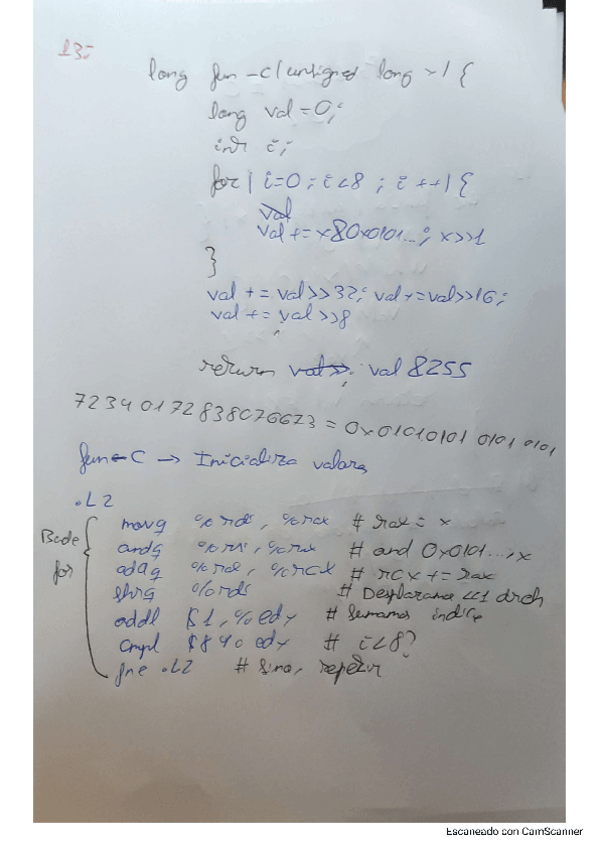 13:
long fun-c(unsigned long x) {
long val = 0;
int i;
for(i=0; i<8; i++) {
val
val += x&0x0101...; x>>1
}
val += val>>32; val+=val>>16;
val += val>>8
return val>>; val &255
72340172838076673 = 0x01010101 0101 0101
fun-C → Inicializa valores
.L2
movq %rdi, %rax # rax = x
andq %rsi, %rax # and 0x0101...,x
addq %rax, %rcx # rcx += rax
shrq %rdi # Desplazam 1 drch
addl $1, %edx # Sumamos indice
cmpl $8 %edx # i<8?
jne .L2 # Sino, repetir
Bucle
for
Escaneado con CamScanner